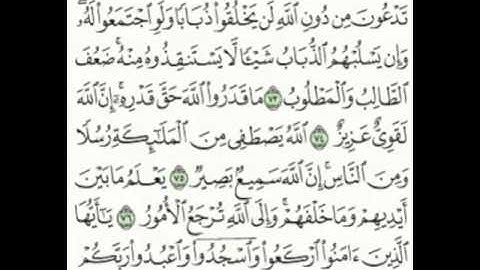 تَدْعُونَ مِن دُونِ ٱللَّهِ لَن يَخْلُقُوا۟ ذُبَابًا وَلَوِ ٱجْتَمَعُوا۟ لَهُۥ ۖ
وَإِن يَسْلُبْهُمُ ٱلذُّبَابُ شَيْـًٔا لَّا يَسْتَنقِذُوهُ مِنْهُ ۚ ضَعُفَ
ٱلطَّالِبُ وَٱلْمَطْلُوبُ ٧٣ مَا قَدَرُوا۟ ٱللَّهَ حَقَّ قَدْرِهِۦٓ ۗ إِنَّ ٱللَّهَ
لَقَوِىٌّ عَزِيزٌ ٧٤ ٱللَّهُ يَصْطَفِى مِنَ ٱلْمَلَـٰٓئِكَةِ رُسُلًا
وَمِنَ ٱلنَّاسِ ۚ إِنَّ ٱللَّهَ سَمِيعٌۢ بَصِيرٌ ٧٥ يَعْلَمُ مَا بَيْنَ
أَيْدِيهِمْ وَمَا خَلْفَهُمْ ۗ وَإِلَى ٱللَّهِ تُرْجَعُ ٱلْأُمُورُ ٧٦ يَـٰٓأَيُّهَا
ٱلَّذِينَ ءَامَنُوا۟ ٱرْكَعُوا۟ وَٱسْجُدُوا۟ وَٱعْبُدُوا۟ رَبَّكُمْ